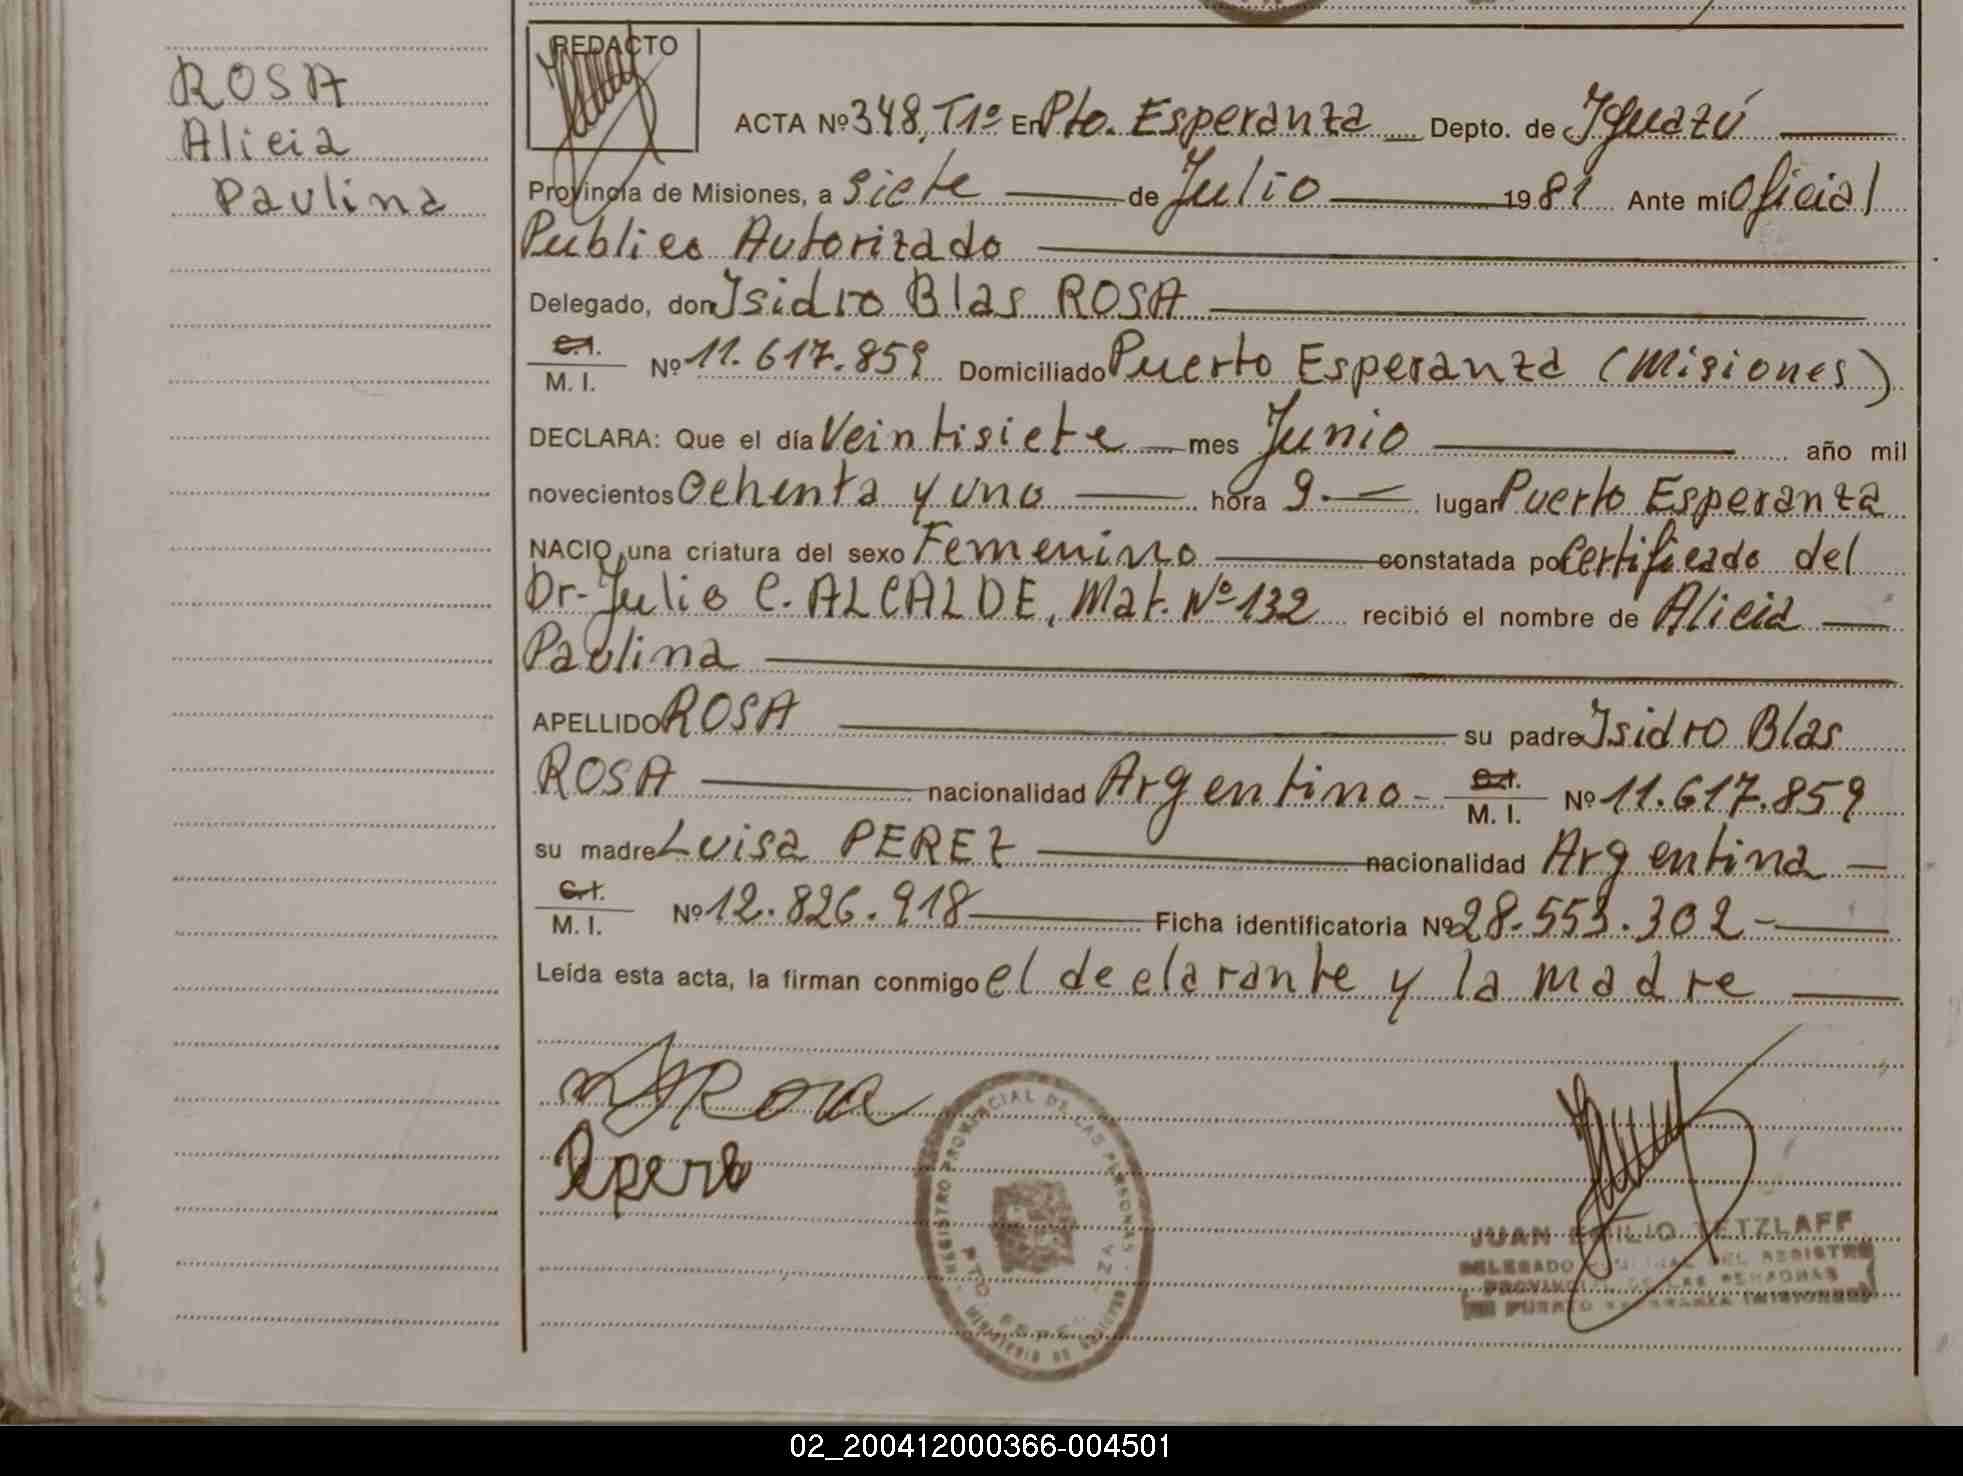 ROSA
Alicia
Paulina
REDACTO
ACTA Nº 348, T1º En Pto. Esperanza Depto. de Iguazú
Provincia de Misiones, a siete de Julio 1981 Ante mí Oficial
Publico Autorizado
Delegado, don Isidro Blas ROSA
C.I. / M. I. Nº 11.617.859 Domiciliado Puerto Esperanza (Misiones)
DECLARA: Que el día Veintisiete mes Junio año mil
novecientos Ochenta y uno hora 9.- lugar Puerto Esperanza
NACIO una criatura del sexo Femenino constatada por Certificado del
Dr. Julio C. ALCALDE, Mat. Nº 132 recibió el nombre de Alicia
Paulina
APELLIDO ROSA su padre Isidro Blas
ROSA nacionalidad Argentino - C.I. / M. I. Nº 11.617.859
su madre Luisa PEREZ nacionalidad Argentina
C.I. / M. I. Nº 12.826.918 Ficha identificatoria Nº 28.553.302-
Leída esta acta, la firman conmigo el declarante y la madre
Rosa
REGISTRO PROVINCIAL DE LAS PERSONAS
PTO
MINISTERIO DE
JUAN EMILIO TETZLAFF
DELEGADO DEL REGISTRO
PROVINCIAL DE LAS PERSONAS
DE PUERTO ESPERANZA (MISIONES)
02_200412000366-004501